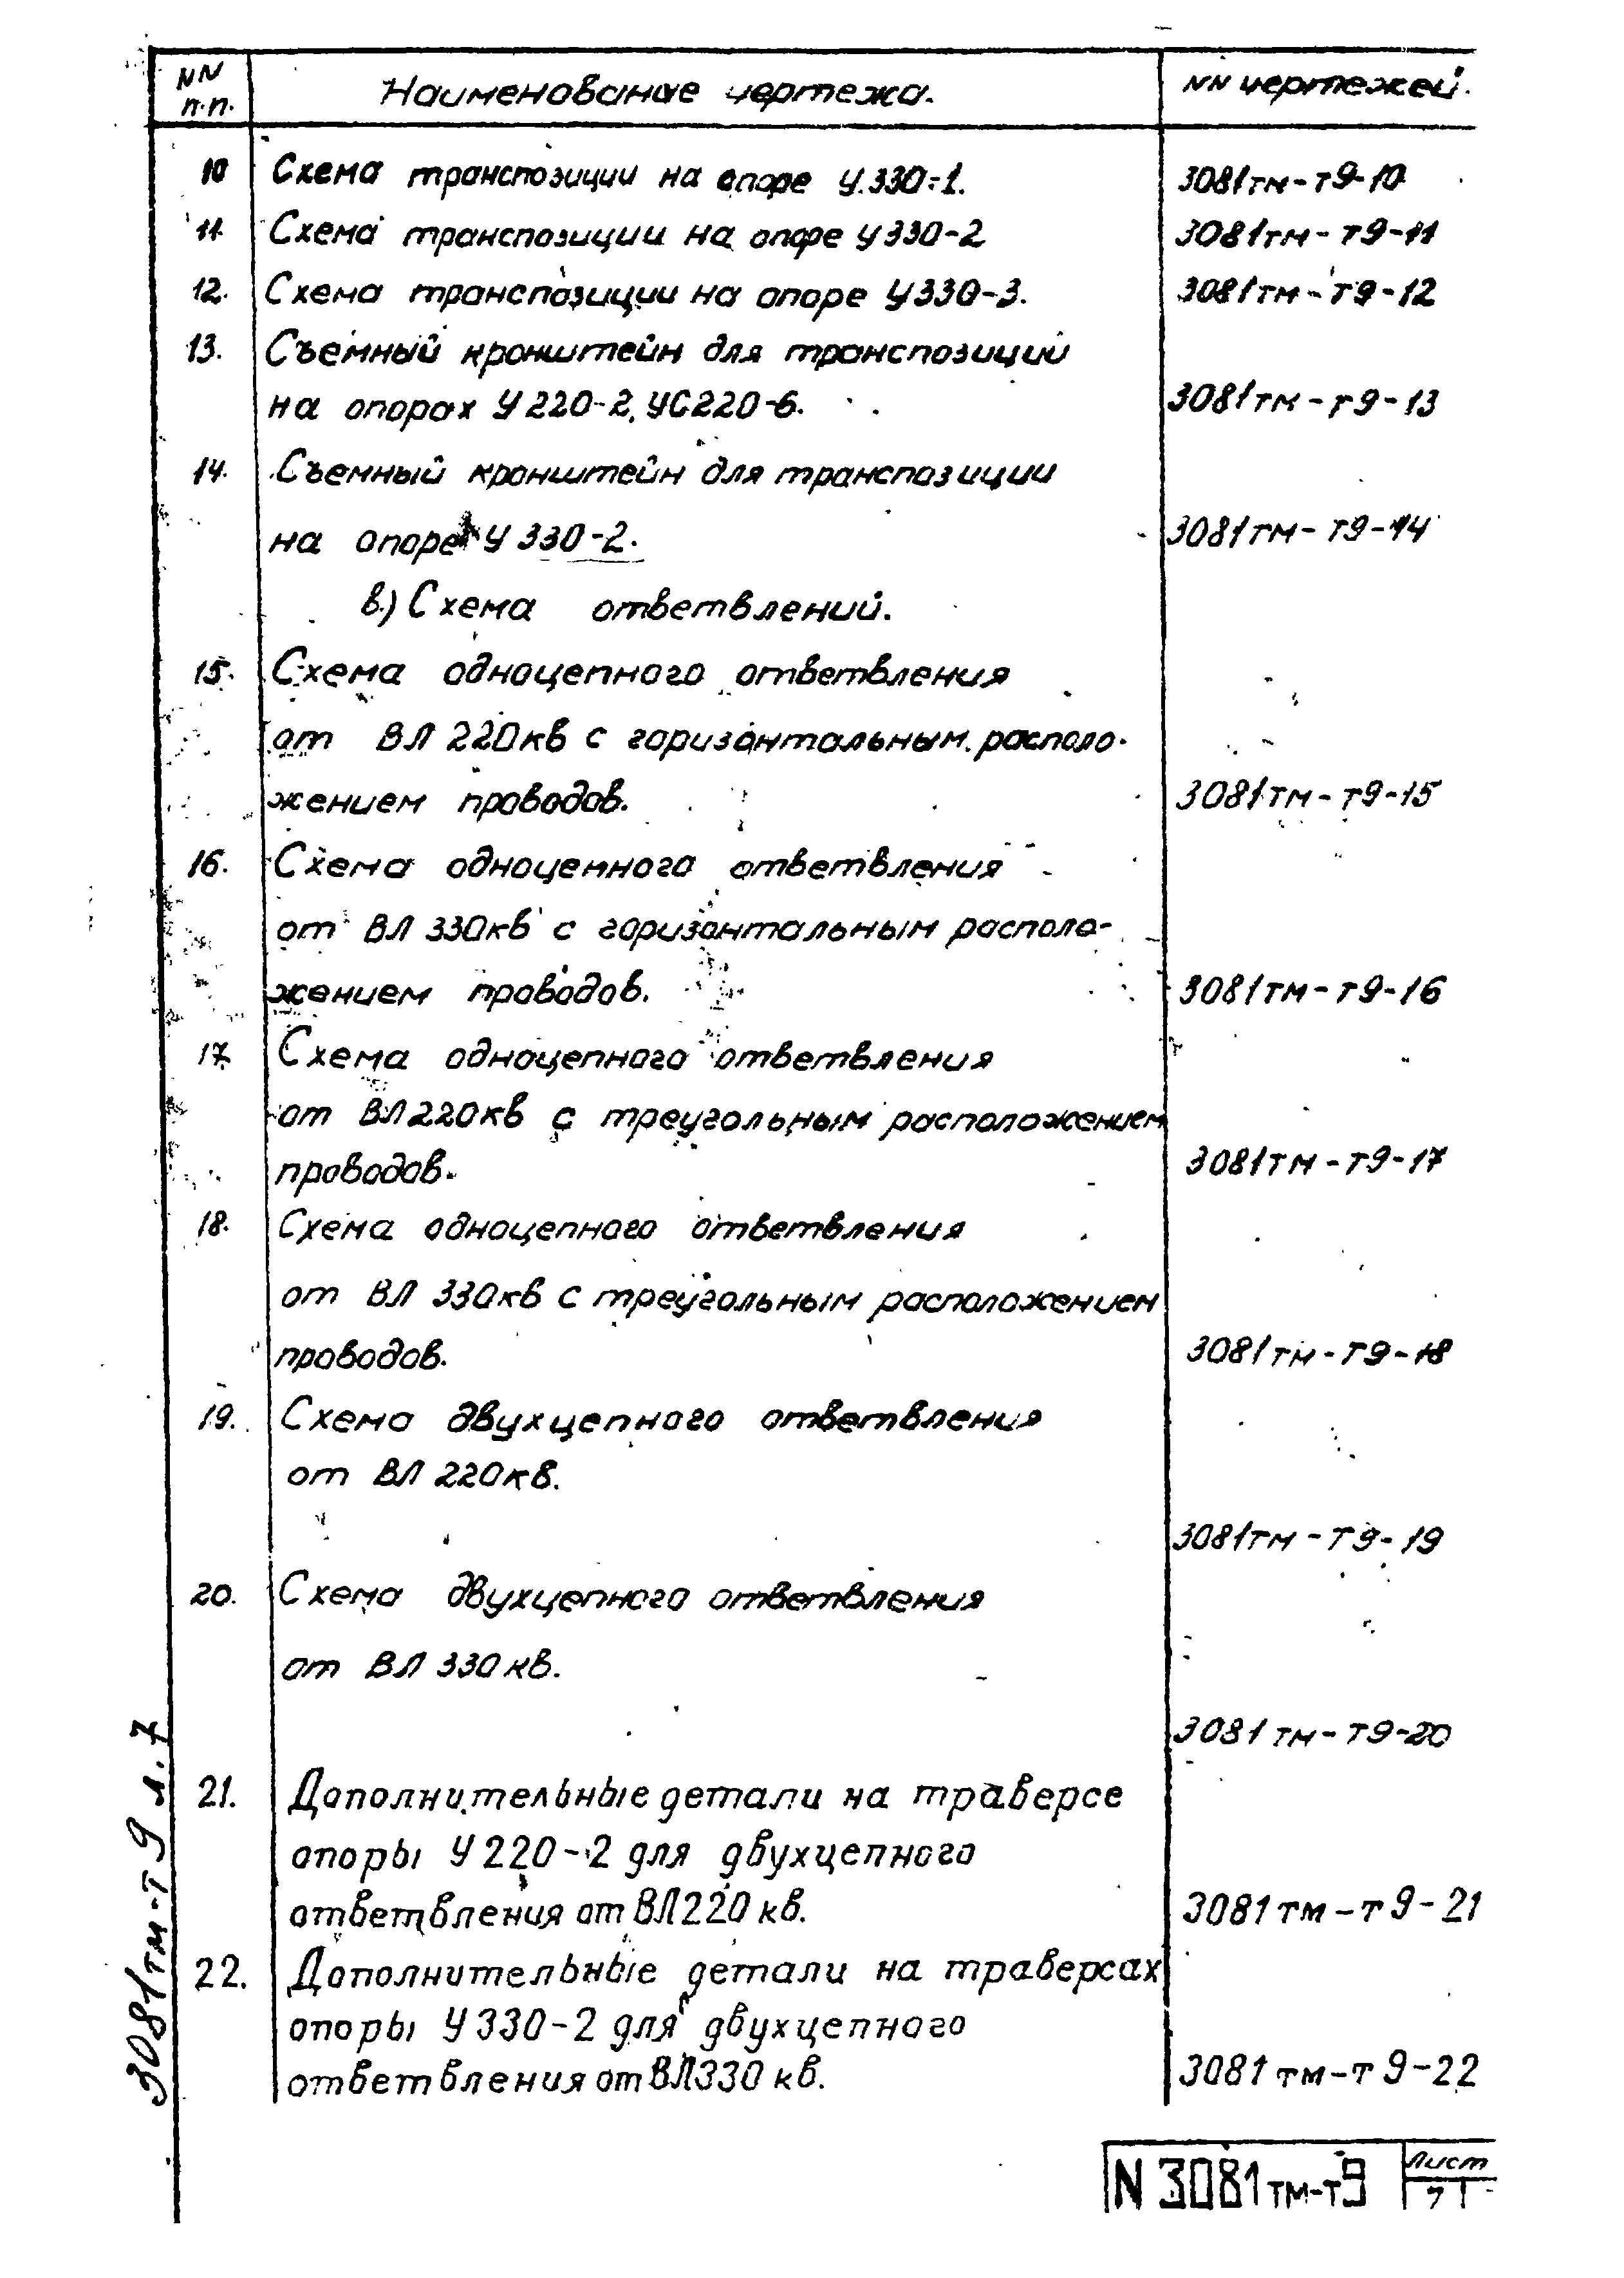 NN п.п. Наименование чертежа. NN чертежей.
10 Схема транспозиции на опоре У.330-1. 3081тм-т9-10
11. Схема транспозиции на опоре У330-2 3081тм-т9-11
12. Схема транспозиции на опоре У330-3. 3081тм-т9-12
13. Съемный кронштейн для транспозиции
на опорах У220-2, УС220-6. 3081тм-т9-13
14. Съемный кронштейн для транспозиции
на опоре У 330-2. 3081тм-т9-14
в.) Схема ответвлений.
15. Схема одноцепного ответвления
от ВЛ 220кв с горизонтальным располо-
жением проводов. 3081тм-т9-15
16. Схема одноцепного ответвления
от ВЛ 330кв с горизонтальным располо-
жением проводов. 3081тм-т9-16
17. Схема одноцепного ответвления
от ВЛ220кв с треугольным расположением
проводов. 3081тм-т9-17
18. Схема одноцепного ответвления
от ВЛ 330кв с треугольным расположением
проводов. 3081тм-т9-18
19. Схема двухцепного ответвления
от ВЛ 220кв.
3081тм-т9-19
20. Схема двухцепного ответвления
от ВЛ 330кв.
3081тм-т9-20
21. Дополнительные детали на траверсе
опоры У220-2 для двухцепного
ответвления от ВЛ220 кв. 3081тм-т9-21
22. Дополнительные детали на траверсах
опоры У330-2 для двухцепного
ответвления от ВЛ330 кв. 3081тм-т9-22
3081тм-т9 л.7
N 3081тм-т9 Лист
7